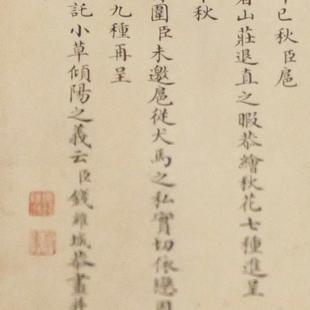 辛巳秋臣扈
山莊退直之暇恭繪秋花七種進呈
秋
圍臣未邀扈從犬馬之私實切依戀因
九種再呈
託小草傾陽之義云臣錢維城恭畫并